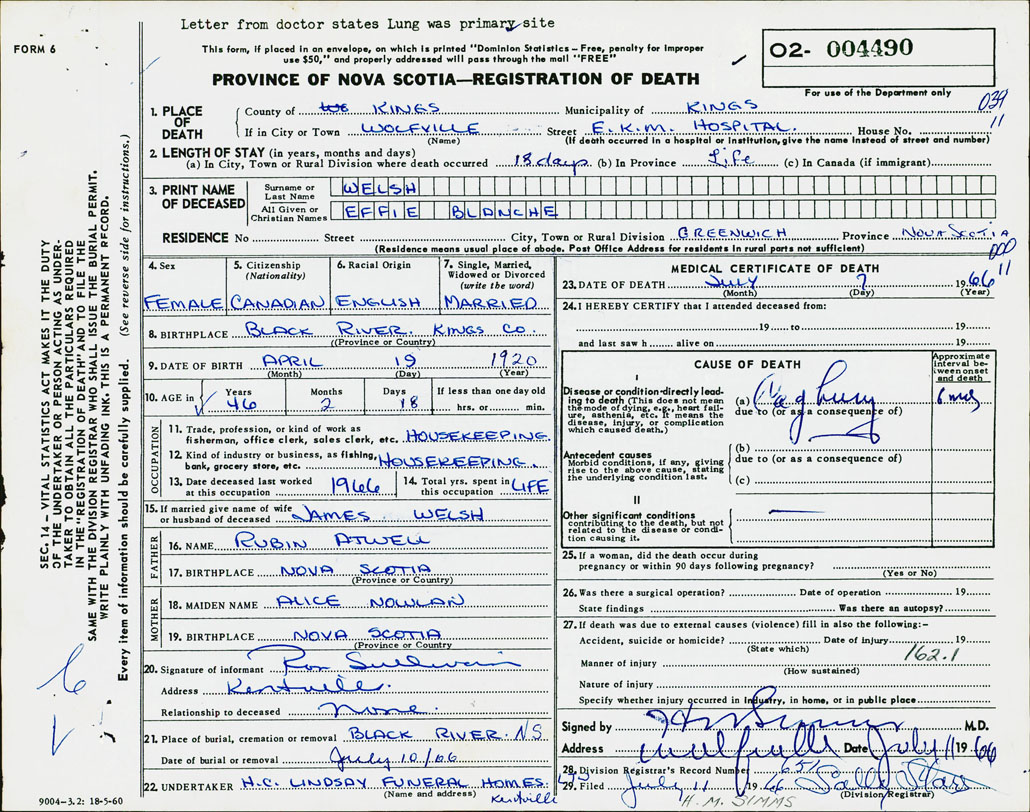 Letter from doctor states Lung was primary site
FORM 6
This form, if placed in an envelope, on which is printed "Dominion Statistics – Free, penalty for improper
use $50," and properly addressed will pass through the mail "FREE"
O2- 004490
For use of the Department only
PROVINCE OF NOVA SCOTIA—REGISTRATION OF DEATH
039
11
1. PLACE OF DEATH
County of KINGS Municipality of KINGS
If in City or Town WOLFVILLE Street E.K.M. HOSPITAL. House No.
(Name) (If death occurred in a hospital or institution, give the name instead of street and number)
2. LENGTH OF STAY (in years, months and days)
(a) In City, Town or Rural Division where death occurred 18 days (b) In Province Life (c) In Canada (if immigrant)
3. PRINT NAME OF DECEASED
Surname or Last Name WELSH
All Given or Christian Names EFFIE BLANCHE
RESIDENCE No Street City, Town or Rural Division GREENWICH Province NOVA SCOTIA
(Residence means usual place of abode. Post Office Address for residents in rural parts not sufficient)
000
11
4. Sex FEMALE
5. Citizenship (Nationality) CANADIAN
6. Racial Origin ENGLISH
7. Single, Married, Widowed or Divorced (write the word) MARRIED
8. BIRTHPLACE BLACK RIVER. KINGS CO.
(Province or Country)
9. DATE OF BIRTH APRIL 19 1920
(Month) (Day) (Year)
10. AGE in Years 46 Months 2 Days 18 If less than one day old hrs. or min.
OCCUPATION
11. Trade, profession, or kind of work as
fisherman, office clerk, sales clerk, etc. HOUSEKEEPING.
12. Kind of industry or business, as fishing,
bank, grocery store, etc. HOUSEKEEPING.
13. Date deceased last worked at this occupation 1966
14. Total yrs. spent in this occupation LIFE
15. If married give name of wife
or husband of deceased JAMES WELSH
FATHER
16. NAME RUBIN ATWELL
17. BIRTHPLACE NOVA SCOTIA
(Province or Country)
MOTHER
18. MAIDEN NAME ALICE NOWLAN
19. BIRTHPLACE NOVA SCOTIA
(Province or Country)
20. Signature of informant Ron Sullivan
Address Kentville.
Relationship to deceased None.
21. Place of burial, cremation or removal BLACK RIVER. NS
Date of burial or removal July 10/66
22. UNDERTAKER H.C. LINDSAY FUNERAL HOMES. LTD
(Name and address) Kentville
MEDICAL CERTIFICATE OF DEATH
23. DATE OF DEATH JULY 7 1966
(Month) (Day) (Year)
24. I HEREBY CERTIFY that I attended deceased from:
19 to 19
and last saw h alive on 19
CAUSE OF DEATH
Approximate interval between onset and death
I
Disease or condition directly leading
to death (This does not mean
the mode of dying, e.g., heart failure,
asthenia, etc. It means the
disease, injury, or complication
which caused death.)
(a) Ca of Lung 6 mos
due to (or as a consequence of)
Antecedent causes
Morbid conditions, if any, giving
rise to the above cause, stating
the underlying condition last.
(b)
due to (or as a consequence of)
(c)
II
Other significant conditions
contributing to the death, but not
related to the disease or condition
causing it.
25. If a woman, did the death occur during
pregnancy or within 90 days following pregnancy?
(Yes or No)
26. Was there a surgical operation? Date of operation 19
State findings Was there an autopsy?
27. If death was due to external causes (violence) fill in also the following:-
Accident, suicide or homicide? Date of injury 19
(State which)
162.1
Manner of injury
(How sustained)
Nature of injury
Specify whether injury occurred in industry, in home, or in public place
Signed by M.D.
Address Wolfville Date July 11 1966
28. Division Registrar's Record Number 651
29. Filed July 11 1966
(Division Registrar)
H. M. SIMMS
SEC. 14 – VITAL STATISTICS ACT MAKES IT THE DUTY
OF THE UNDERTAKER OR PERSON ACTING AS UNDERTAKER
TO OBTAIN ALL THE PARTICULARS REQUIRED
IN THE "REGISTRATION OF DEATH" AND TO FILE THE
SAME WITH THE DIVISION REGISTRAR WHO SHALL ISSUE THE BURIAL PERMIT.
WRITE PLAINLY WITH UNFADING INK. THIS IS A PERMANENT RECORD.
Every item of information should be carefully supplied. (See reverse side for instructions.)
9004–3.2: 18-5-60